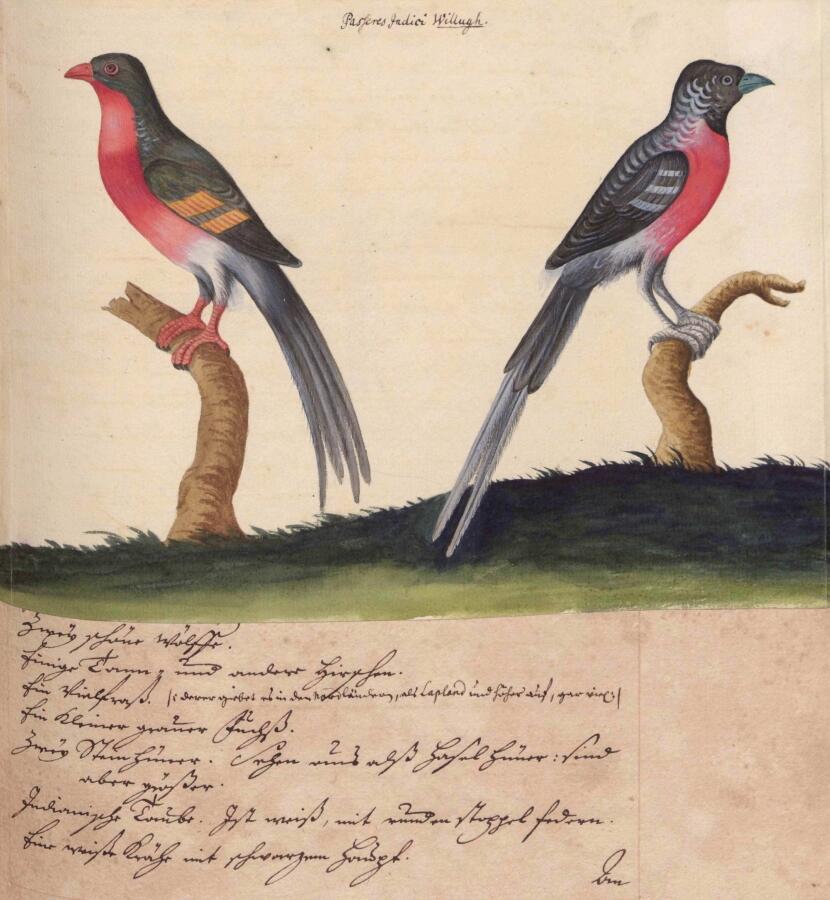 Passeres Indici Willugh.
Zweÿ schöne Wölffe.
Einige Tann- und andere Hirschen.
Ein Vielfraß. (: derer giebet es in den Nordländern, als Lapland und höher auf, gar viel :)
Ein Kleiner grauer Fuchß.
Zweÿ Steinhüner. Sehen auß alß Haselhüner: sind
aber größer.
Indianische Taube. Ist weiß, mit runden stoppel federn.
Eine weiße Krähe mit schwarzem Haupt.